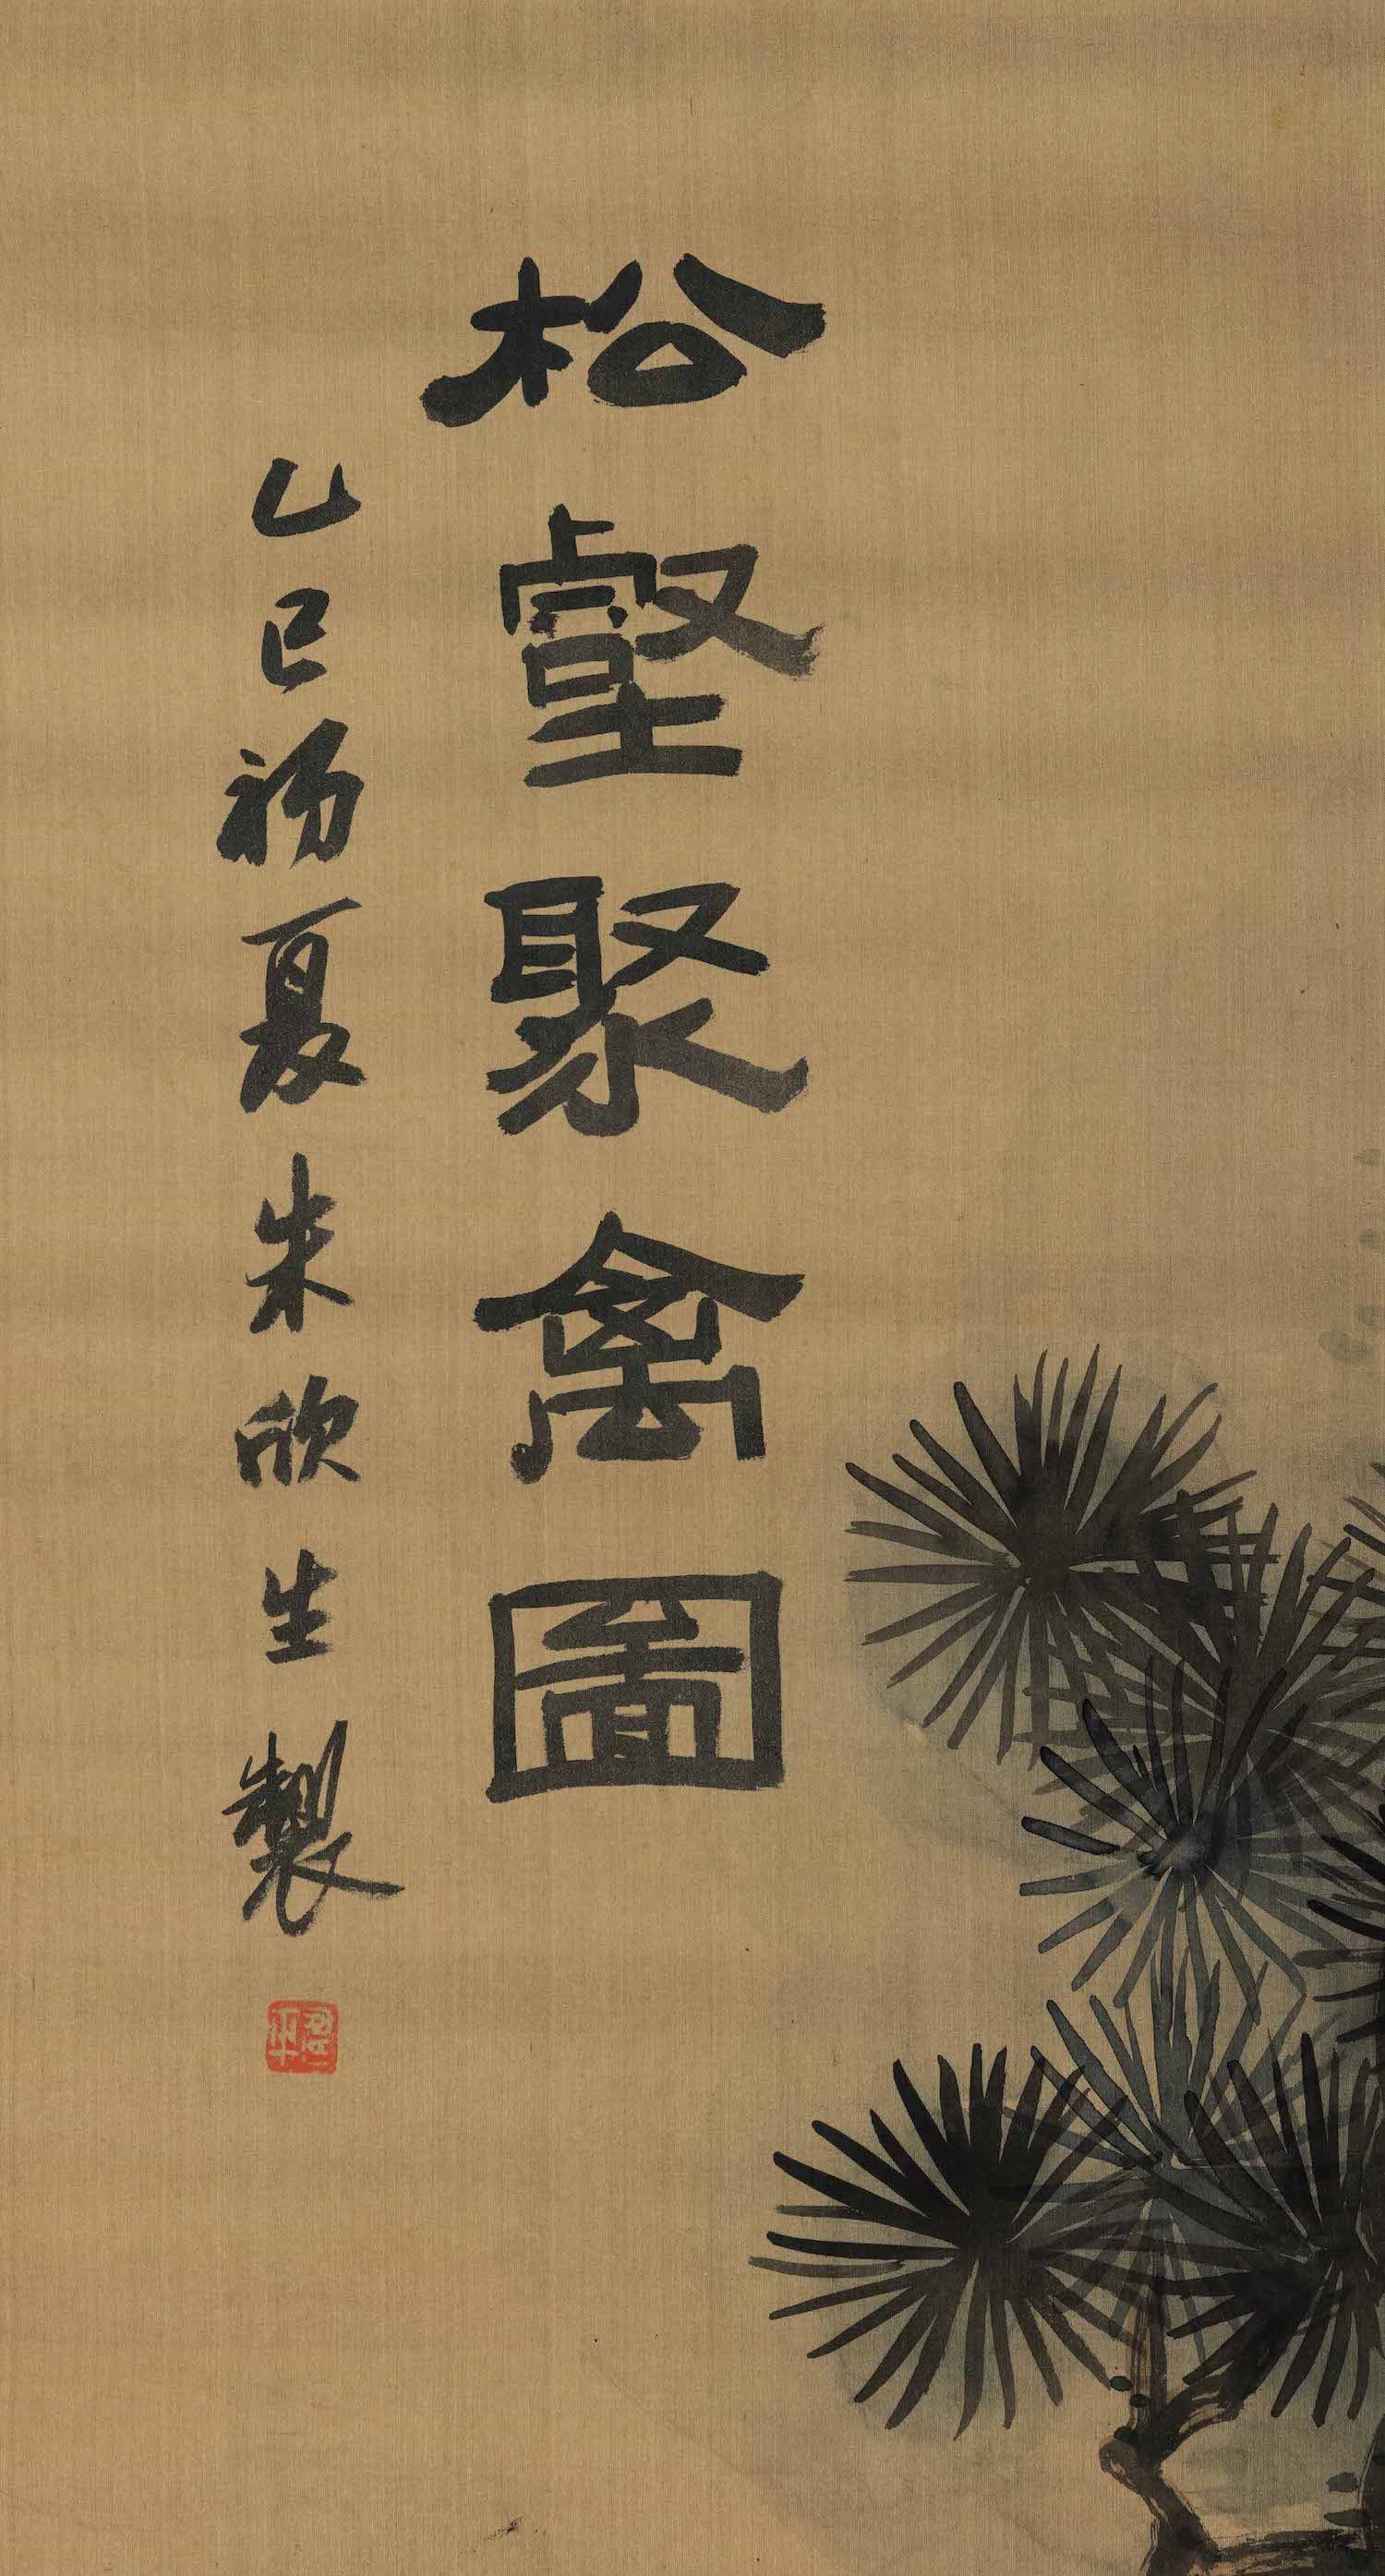 松壑聚禽圖
乙巳初夏朱欣生製